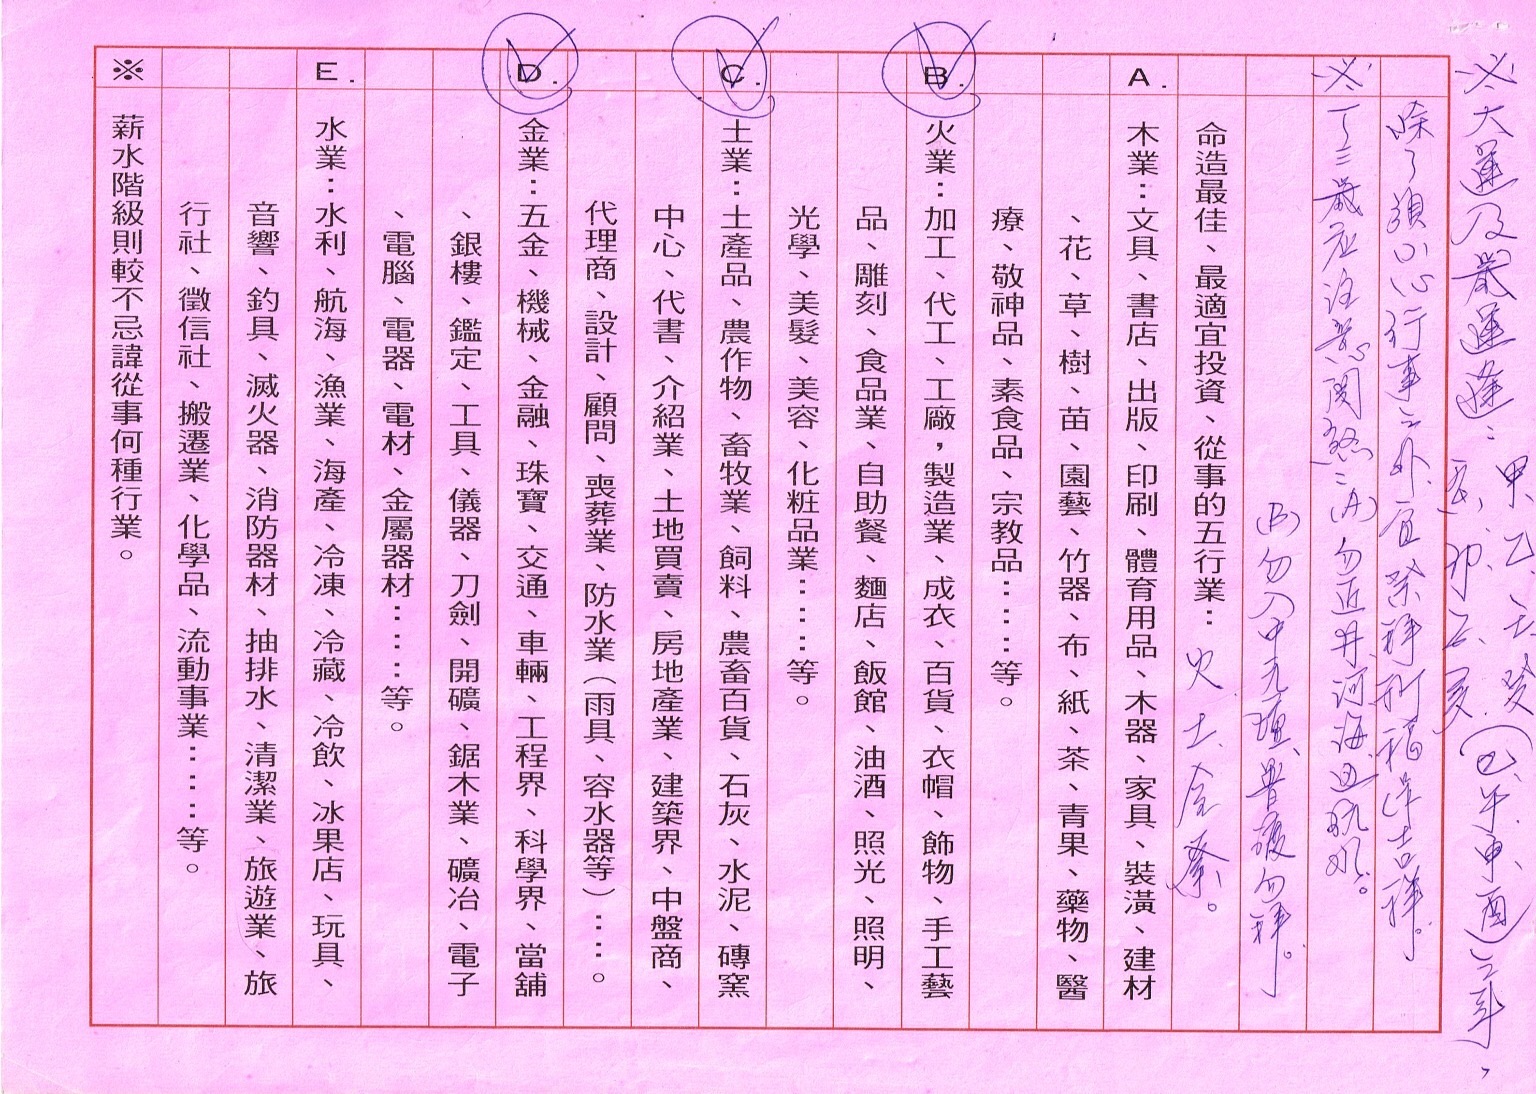 ※大運及歲運逢：甲、乙、壬、癸（巳、午、申、酉）之年，
寅、卯、子、亥
除了須小心行事之外，宜祭拜祈福祥吉祥。
※丁三歲应注意關煞：(A)勿近井、河海边玩水。
(B)勿入中元壇、普渡勿拜。
命造最佳、最適宜投資、從事的五行業：火、土、金業。
A. 木業：文具、書店、出版、印刷、體育用品、木器、家具、裝潢、建材
、花、草、樹、苗、園藝、竹器、布、紙、茶、青果、藥物、醫
療、敬神品、素食品、宗教品……等。
B. 火業：加工、代工、工廠，製造業、成衣、百貨、衣帽、飾物、手工藝
品、雕刻、食品業、自助餐、麵店、飯館、油酒、照光、照明、
光學、美髮、美容、化粧品業……等。
C. 土業：土產品、農作物、畜牧業、飼料、農畜百貨、石灰、水泥、磚窯
中心、代書、介紹業、土地買賣、房地產業、建築界、中盤商、
代理商、設計、顧問、喪葬業、防水業（雨具、容水器等）……。
D. 金業：五金、機械、金融、珠寶、交通、車輛、工程界、科學界、當舖
、銀樓、鑑定、工具、儀器、刀劍、開礦、鋸木業、礦冶、電子
、電腦、電器、電材、金屬器材……等。
E. 水業：水利、航海、漁業、海產、冷凍、冷藏、冷飲、冰果店、玩具、
音響、釣具、滅火器、消防器材、抽排水、清潔業、旅遊業、旅
行社、徵信社、搬遷業、化學品、流動事業……等。
※ 薪水階級則較不忌諱從事何種行業。